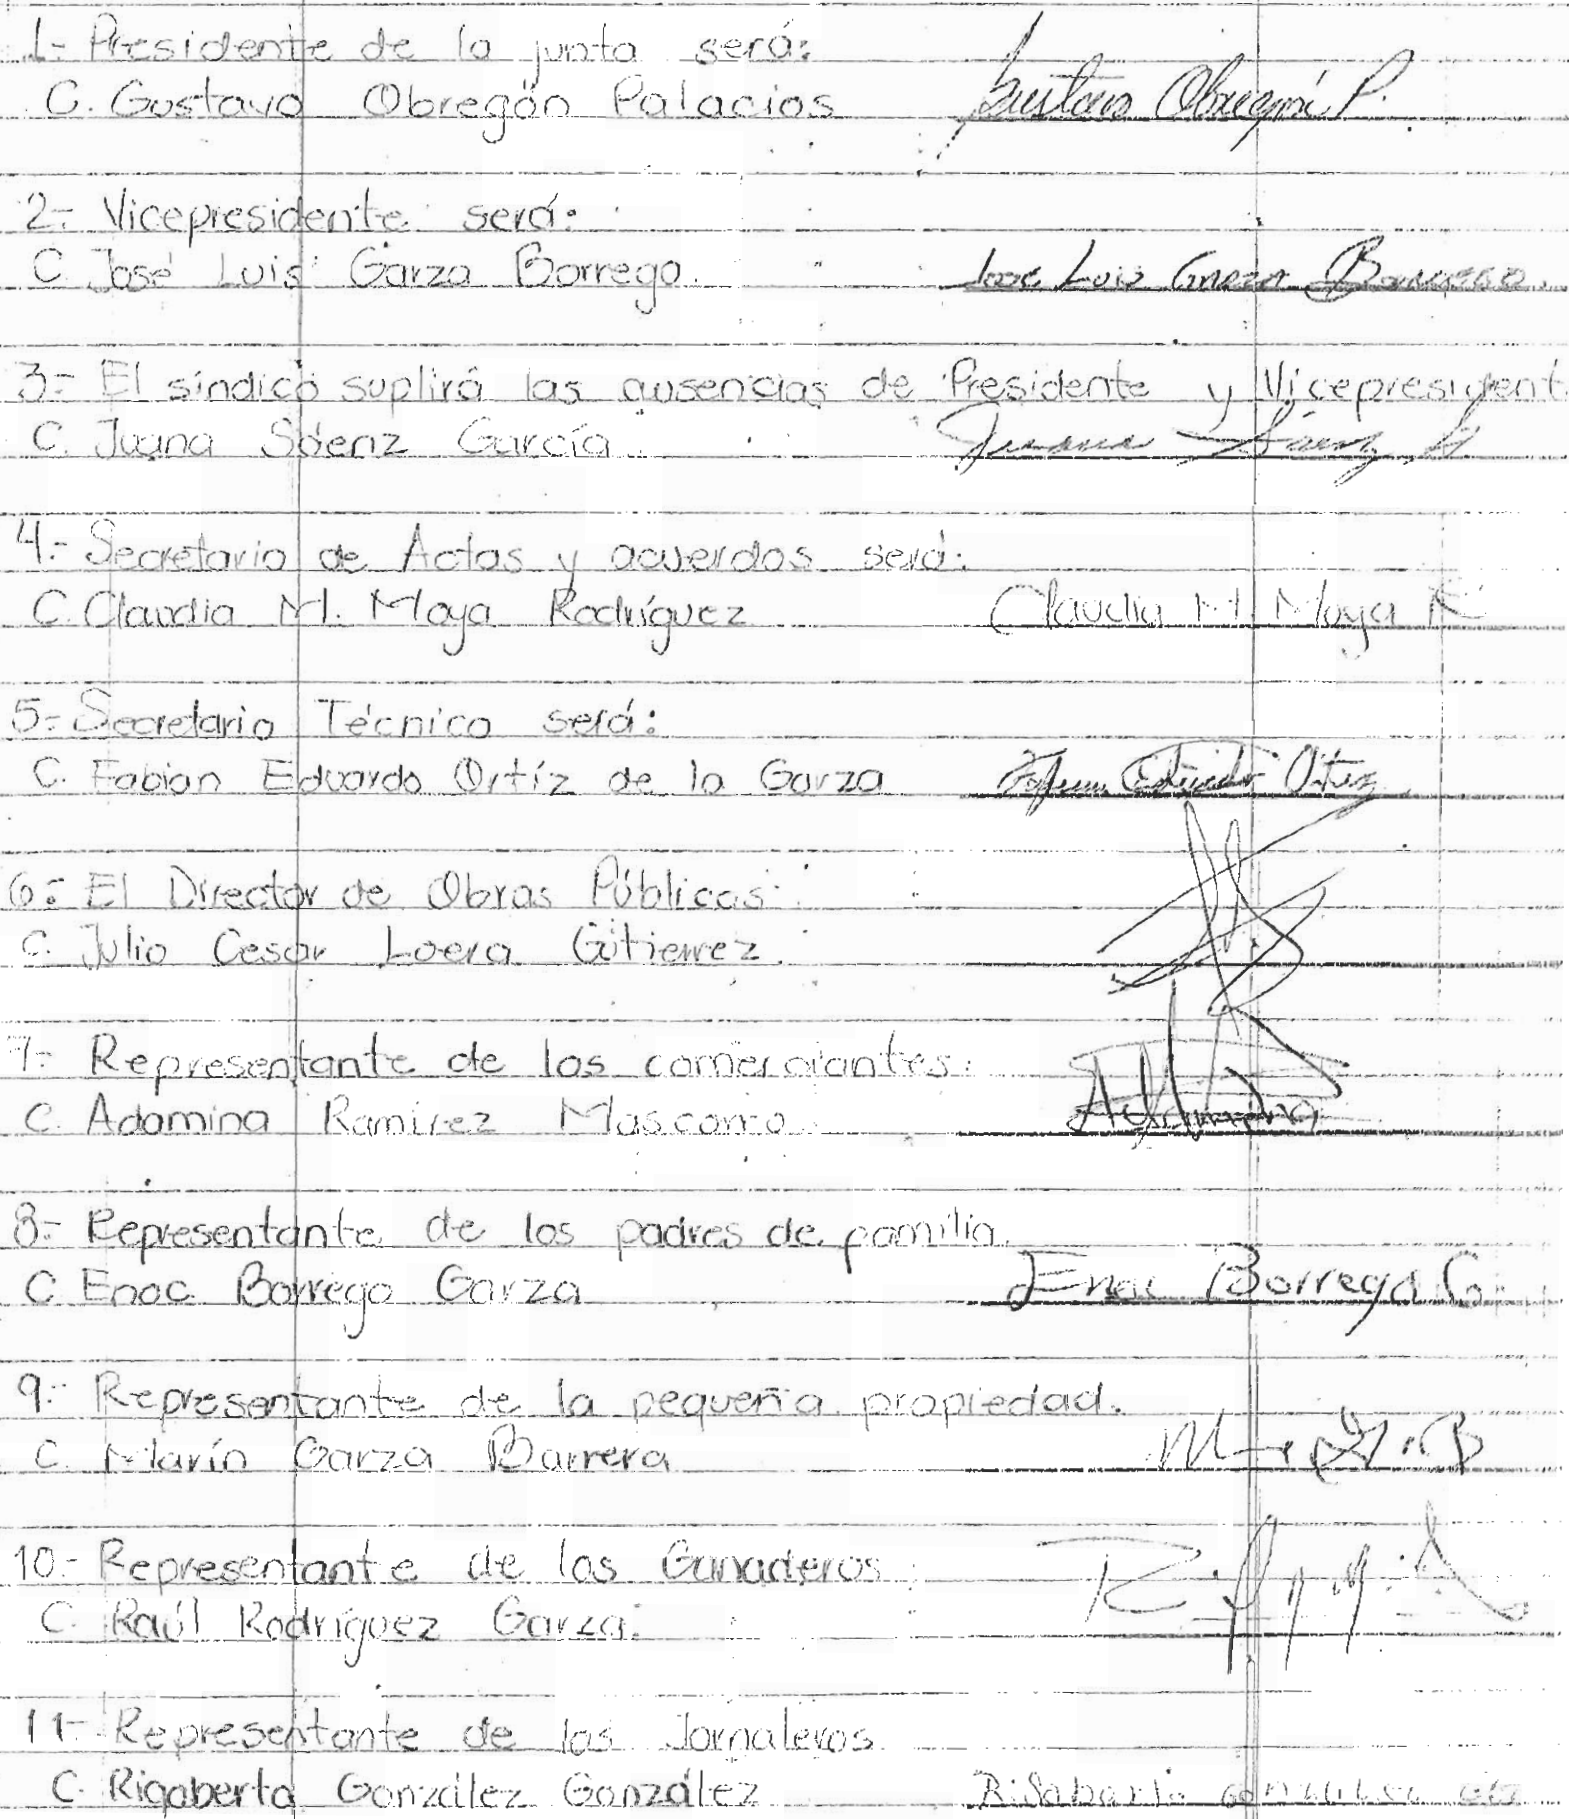 1.- Presidente de la junta será:
C. Gustavo Obregón Palacios Gustavo Obregón P.
2.- Vicepresidente será:
C. José Luis Garza Borrego. Jose Luis Garza Borrego.
3.- El síndico suplirá las ausencias de Presidente y Vicepresident
C. Juana Sáenz García Juana Sáenz G.
4.- Secretario de Actas y acuerdos será:
C. Claudia M. Moya Rodríguez Claudia M. Moya R
5.- Secretario Técnico será:
C. Fabian Eduardo Ortíz de la Garza Eduardo Ortiz
6.- El Director de Obras Públicas
C. Julio Cesar Loera Gutierrez.
7.- Representante de los comerciantes.
C. Adamina Ramirez Mascorro Adamina
8.- Representante de los padres de familia.
C. Enoc Borrego Garza Enoc Borrego G.
9.- Representante de la pequeña propiedad.
C. Marín Garza Barrera
10.- Representante de los Ganaderos
C. Raúl Rodríguez Garza.
11- Representante de los Jornaleros
C. Rigoberto González González